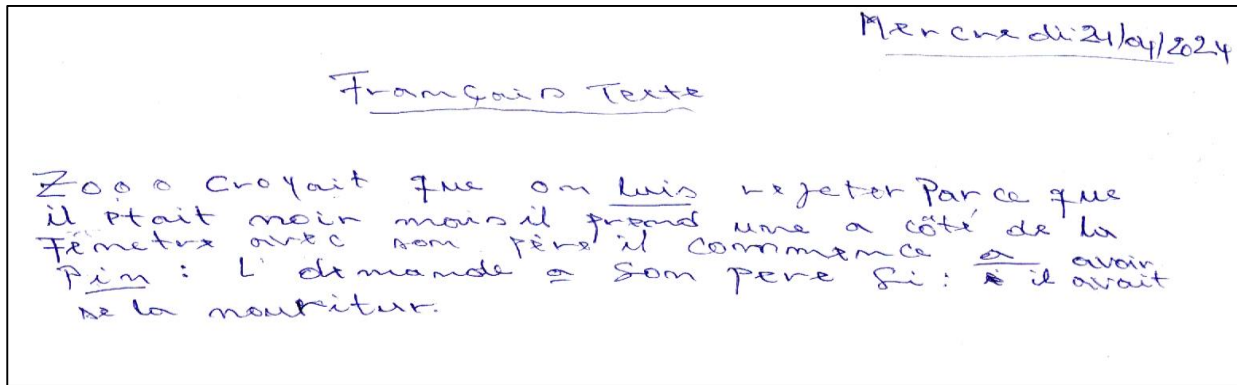 Mercredi 21/04/2024
Français Texte
Zooo croyait que on luis rejeter Parce que
il était noir mais il prend une a côté de la
Fenetre avec son père il commence a avoir
Pin : L' demande a son pere si : il avait
de la nouritur.